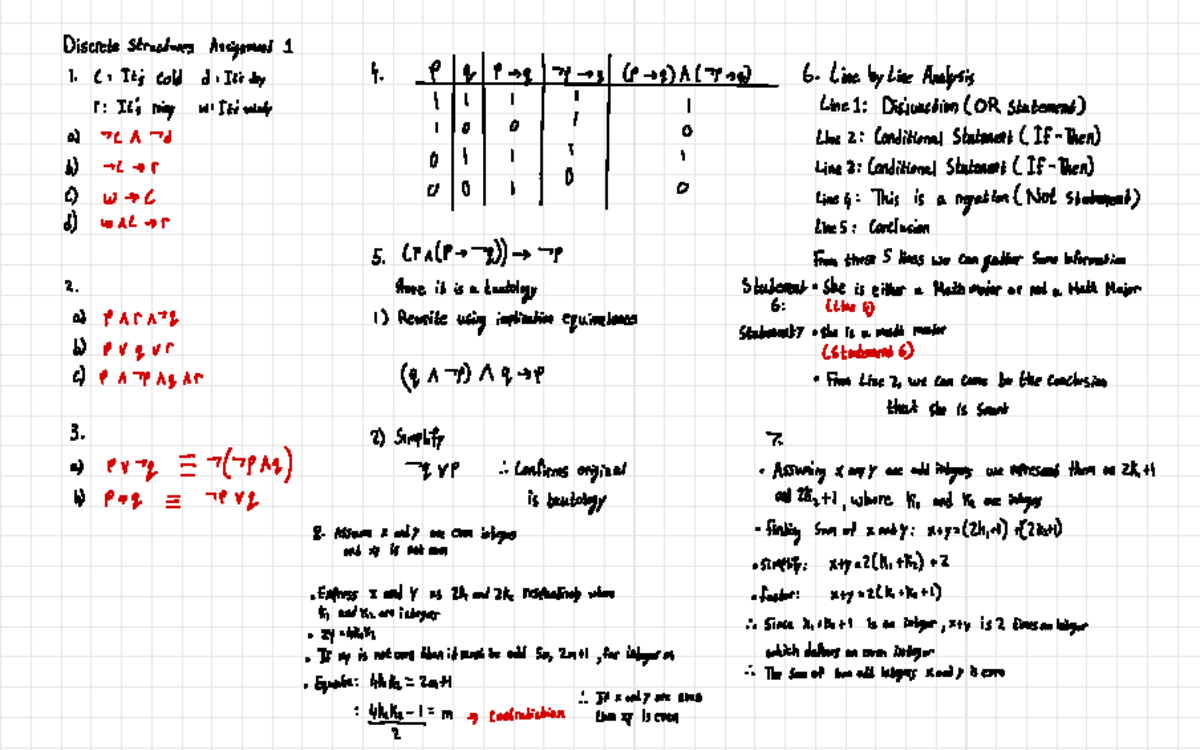 Discrete Structures Assignment 1
1. C: It's cold d: It's dry
r: It's rainy w: It's windy
a) ¬C ∧ ¬d
b) ¬C → r
c) w → C
d) w ∧ C → r
2.
a) P ∧ r ∧ ¬q
b) P ∨ q ∨ r
c) P ∧ ¬P ∧ q ∧ r
3.
a) P ∨ ¬q ≡ ¬(¬P ∧ q)
b) P → q ≡ ¬P ∨ q
4. P q P → q ¬P → q (P → q) ∧ (¬P → q)
1 1 1 1 1
1 0 0 1 0
0 1 1 1 1
0 0 1 0 0
5. (P ∧ (P → ¬q)) → ¬P
Show it is a tautology
1) Rewrite using implication equivalences
(q ∧ ¬P) ∧ q → P
2) Simplify
¬q ∨ P ∴ Confirms original
is tautology
6. Line by Line Analysis
Line 1: Disjunction (OR Statement)
Line 2: Conditional Statement (If-Then)
Line 3: Conditional Statement (If-Then)
Line 4: This is a negation (Not Statement)
Line 5: Conclusion
From these 5 lines we can gather some information
Statement 6: • She is either a Math major or not a Math Major
(Line 1)
Statement 7 • She is a math major
(Statement 6)
• From Line 2, we can come to the conclusion
that she is smart
7.
• Assuming x and y are odd integers we represent them as 2k₁+1
and 2k₂+1, where k₁ and k₂ are integers
• Finding Sum of x and y: x+y=(2k₁+1)+(2k₂+1)
• Simplify: x+y=2(k₁+k₂)+2
• Factor: x+y=2(k₁+k₂+1)
∴ Since k₁+k₂+1 is an integer, x+y is 2 times an integer
which defines an even integer
∴ The sum of two odd integers x and y is even
8. Assume x and y are even integers
and xy is not even
• Express x and y as 2k₁ and 2k₂ respectively where
k₁ and k₂ are integers
• xy=4k₁k₂
• If xy is not even then it must be odd So, 2m+1, for integer m
• Equate: 4k₁k₂ = 2m+1
: 4k₁k₂-1 / 2 = m → Contradiction
∴ If x and y are even
then xy is even